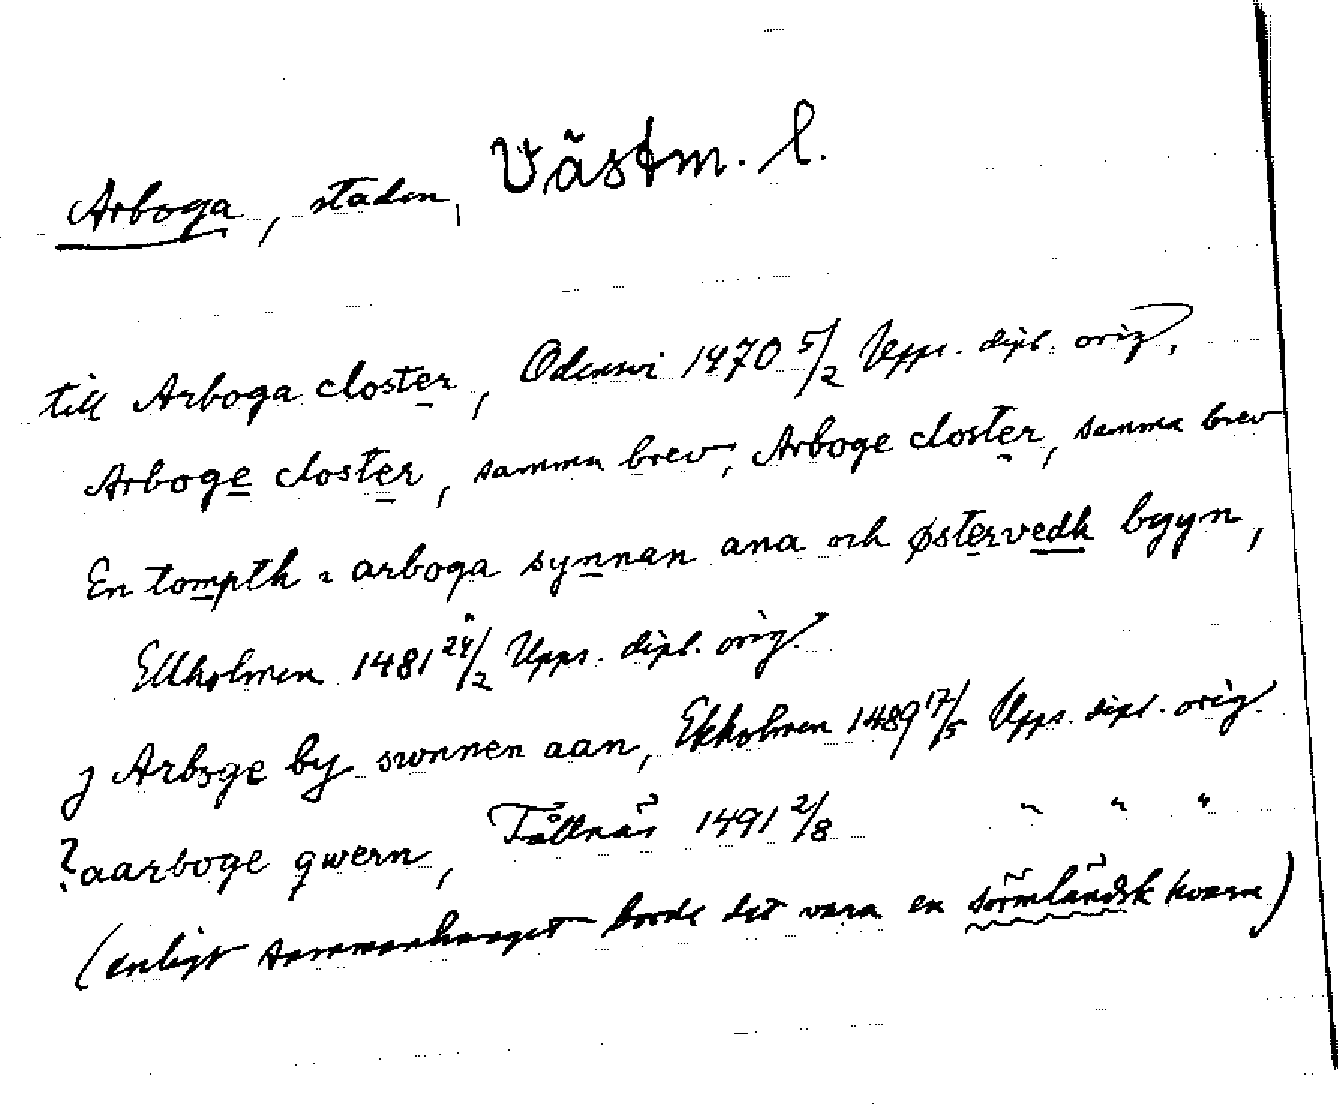 Arboga, staden, Västm. l.
till Arboga closter, Odensvi 1470 5/2 Upps. dipl. orig.,
Arboge closter, samma brev, Arboge closter, samma brev
En tompth i arboga synnan ana och østervedh byyn,
Ekholmen 1481 24/2 Upps. dipl. orig.
J Arboge by swnnen aan, Ekholmen 1489 17/5 Upps. dipl. orig.
? aarboge qwern, Tållnäs 1491 2/8 " " "
(enligt sammanhanget borde det vara en sörmländsk kvarn)